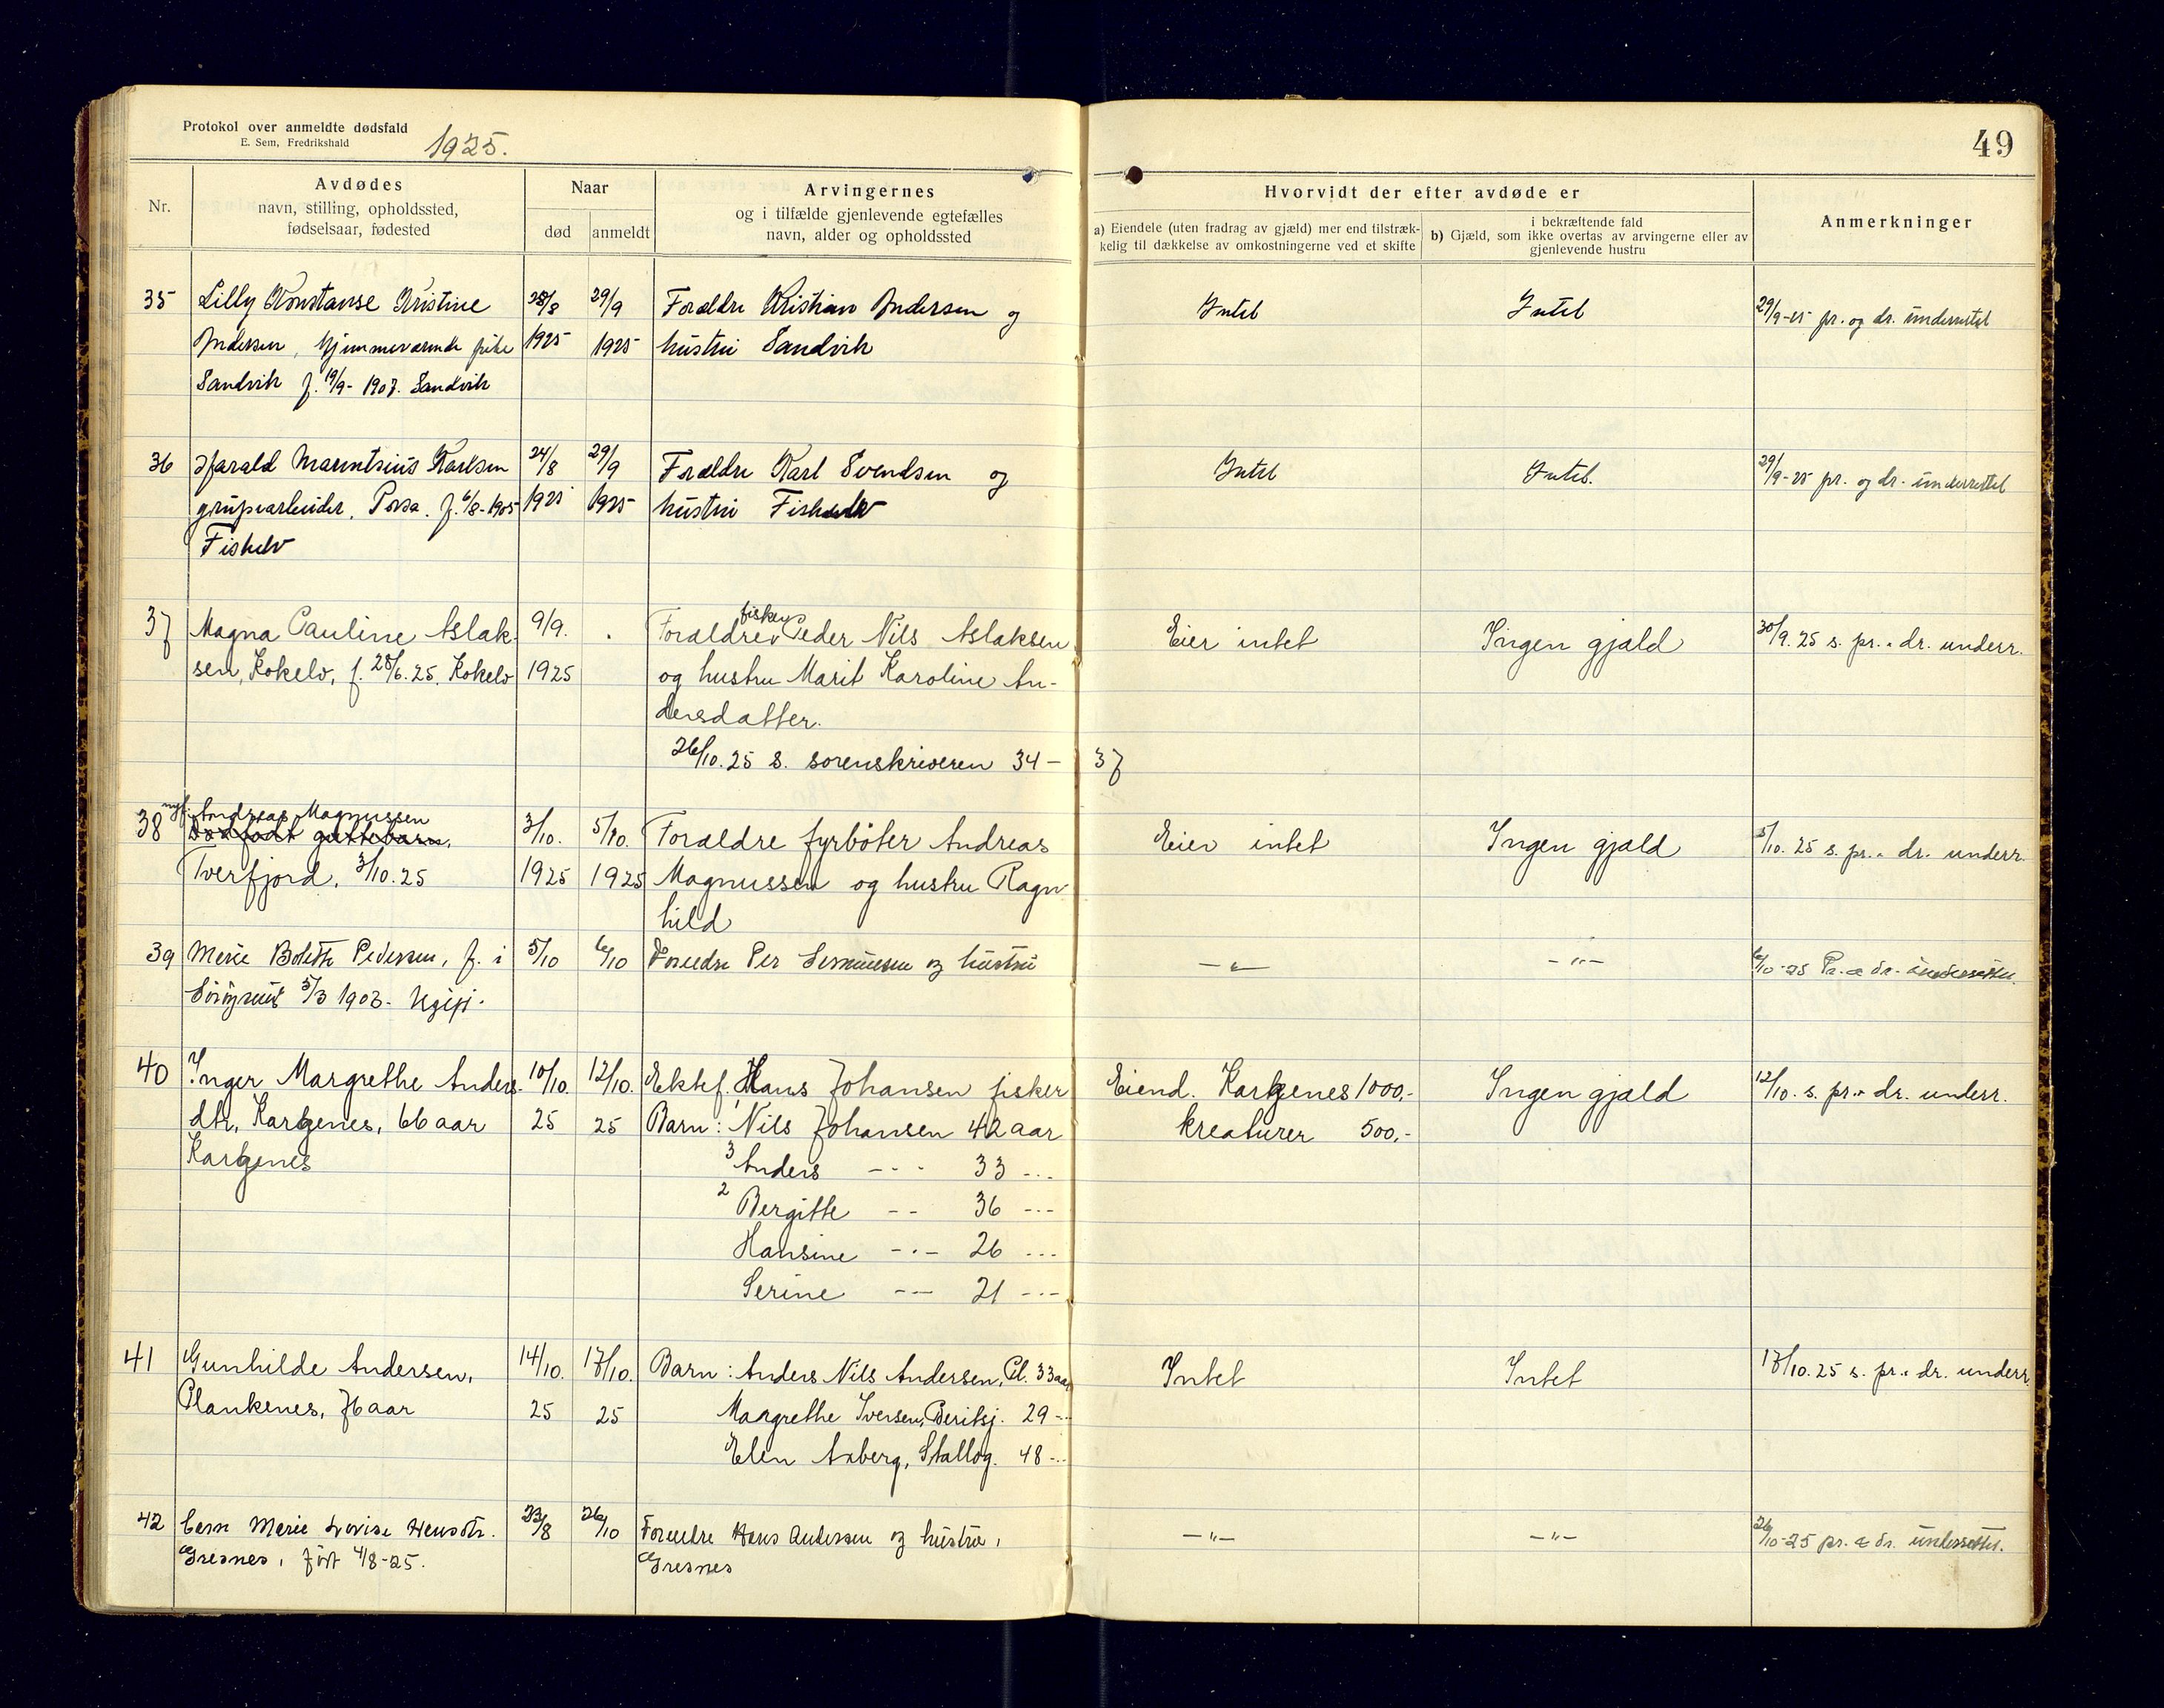 Protokol over anmeldte dødsfald
E. Sem, Fredrikshald
1925.
49
Nr.
Avdødes
navn, stilling, opholdssted,
fødselsaar, fødested
Naar
død
anmeldt
Arvingernes
og i tilfælde gjenlevende egtefælles
navn, alder og opholdssted
Hvorvidt der efter avdøde er
a) Eiendele (uten fradrag av gjæld) mer end tilstræk-
kelig til dækkelse av omkostningerne ved et skifte
i bekræftende fald
b) Gjæld, som ikke overtas av arvingerne eller av
gjenlevende hustru
Anmerkninger
35 Lilly Konstanse Kristine 28/8 29/9 Forældre Kristian Andersen og Intet Intet 29/9-25 pr. og dr. underrettet
Andersen, hjemmeværende pike 1925 1925 hustru Sandvik
Sandvik f. 19/9-1907. Sandvik
36 Harald Karlsen 24/8 29/9 Forældre Karl Svendsen og Intet Intet. 29/9-25 pr. og dr. underrettet
grubearbeider, Porsa. f. 6/8-1905 1925 1925 hustru Fiskelv
Fiskelv
37 Magna Pauline Aslak- 9/9. fisker
Forældre Peder Nils Aslaksen Eier intet Ingen gjæld 30/9.25 s. pr. " dr. underr.
sen, Kokelv, f. 28/6.25, Kokelv 1925 og hustru Marit Karoline An-
dersdatter.
26/10.25 s. sorenskriveren 34 – 37
nyf. Andreas Magnussen
38 Dødfødt guttebarn, 3/10. 5/10. Forældre fyrbøter Andreas Eier intet Ingen gjæld 5/10.25 s. pr. " dr. underr.
Tverfjord, 3/10.25 1925 1925 Magnussen og hustru Ragn-
hild
39 Merie Bolette Pedersen, f. i 5/10 6/10 Forældre Per og hustru – " – – " – 6/10-25 Pr. & dr. underrettet.
5/3 1903. Ugift.
40 Inger Margrethe Anders. 10/10. 12/10. Ektef. Hans Johansen fisker Eiend. Kargenes 1000,- Ingen gjæld 12/10. s. pr. " dr. underr.
dtr, Kargenes, 66 aar 25 25 Barn: Nils Johansen 42 aar kreaturer 500,-
Kargenes 3 Anders – " – 33 – " –
2 Bergitte – " – 36 – " –
Hansine – " – 26 – " –
Serine – " – 21 – " –
41 Gunhilde Andersen, 14/10. 17/10. Barn: Anders Nils Andersen, Pl. 33 aar Intet Intet 17/10.25 s. pr. " dr. underr.
Plankenes, 76 aar 25 25 Margrethe Iversen, Beritsj. 29 – " –
Elen Aaberg, Stallog. 48 – " –
42 Merie Lovise Hansdtr. 23/8 26/10 Forældre Hans Andersen og hustru, – " – – " – 26/10-25 pr. & dr. underrettet.
Gresnes, født 4/8-25. Gresnes